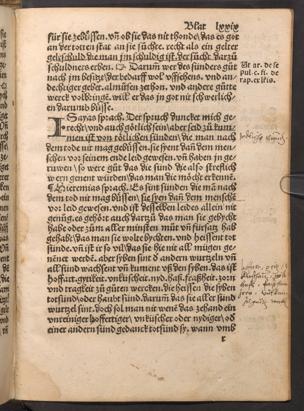 Blat lxxix
für sie zebüssen. vn̄ ob sie das nit thond/ das es got
an der totten stat an sie sůchte. recht als ein gelter
geltschuld die man jm schuldig ist. der sůcht darzů
schuldners erben. Darum̄ wer des sünders gůt
nach jm besitzt/ der bedarff wol/ offichens. vnd an-
dechtiger gebet. almůsen zethon. vnd andere gůtte
werck volbringē. will er das jn got nit schwerlich-
en darumb büsse.
ISayas sprach. Der spruch duncket mich ge-
recht/ vnd auch götlich sein/ aber seid
man nach
dem tode nit mag gebüssen. sie syent dan̄ dem men-
schen vor seinem ende leid gewesen. vn̄ haben jn ge-
ruwen/ so were gůt das die sünd die also
wern genent würden/ das man die möcht erkennē.
Hieremias sprach. Es sint sünden die mā nach
dem tod nit mag büssen/ sie syen dan̄ dem menschē
vor leid gewesen. vnd ist des selben leides allein nit
genůg. es gehört auch dartzů das man sie gebycht
habe oder zům aller minsten můt vn̄ fürsatz hab
gehabt/ das man sie wolte bychten. vnd heissent tot
sünde. vn̄ ist ir so vil das sie nit all mügen ge-
nēnet werdē. aber syben sint d' andern wurtzeln vn̄
all sünd wachsent vn̄ kummē vß den syben. das ist
hoffart. gytikeit. vnkuscheit. nyd. haß. fraßheit. zorn
vnd tragkeit zů gůten wercken. die heissen die syben
totsünd/ oder haubt sünd. darum̄ das sie aller sünd
wurtzel sint. doch sol man nit wene das zehand ein
vnreiniger hoffertiger/ vnküscher oder nydiger/ oď
einer andern sünd gedanck totsünd sy. wann vmb
Ut ar. de se
pul. c. fi. de
rap. er ltis.